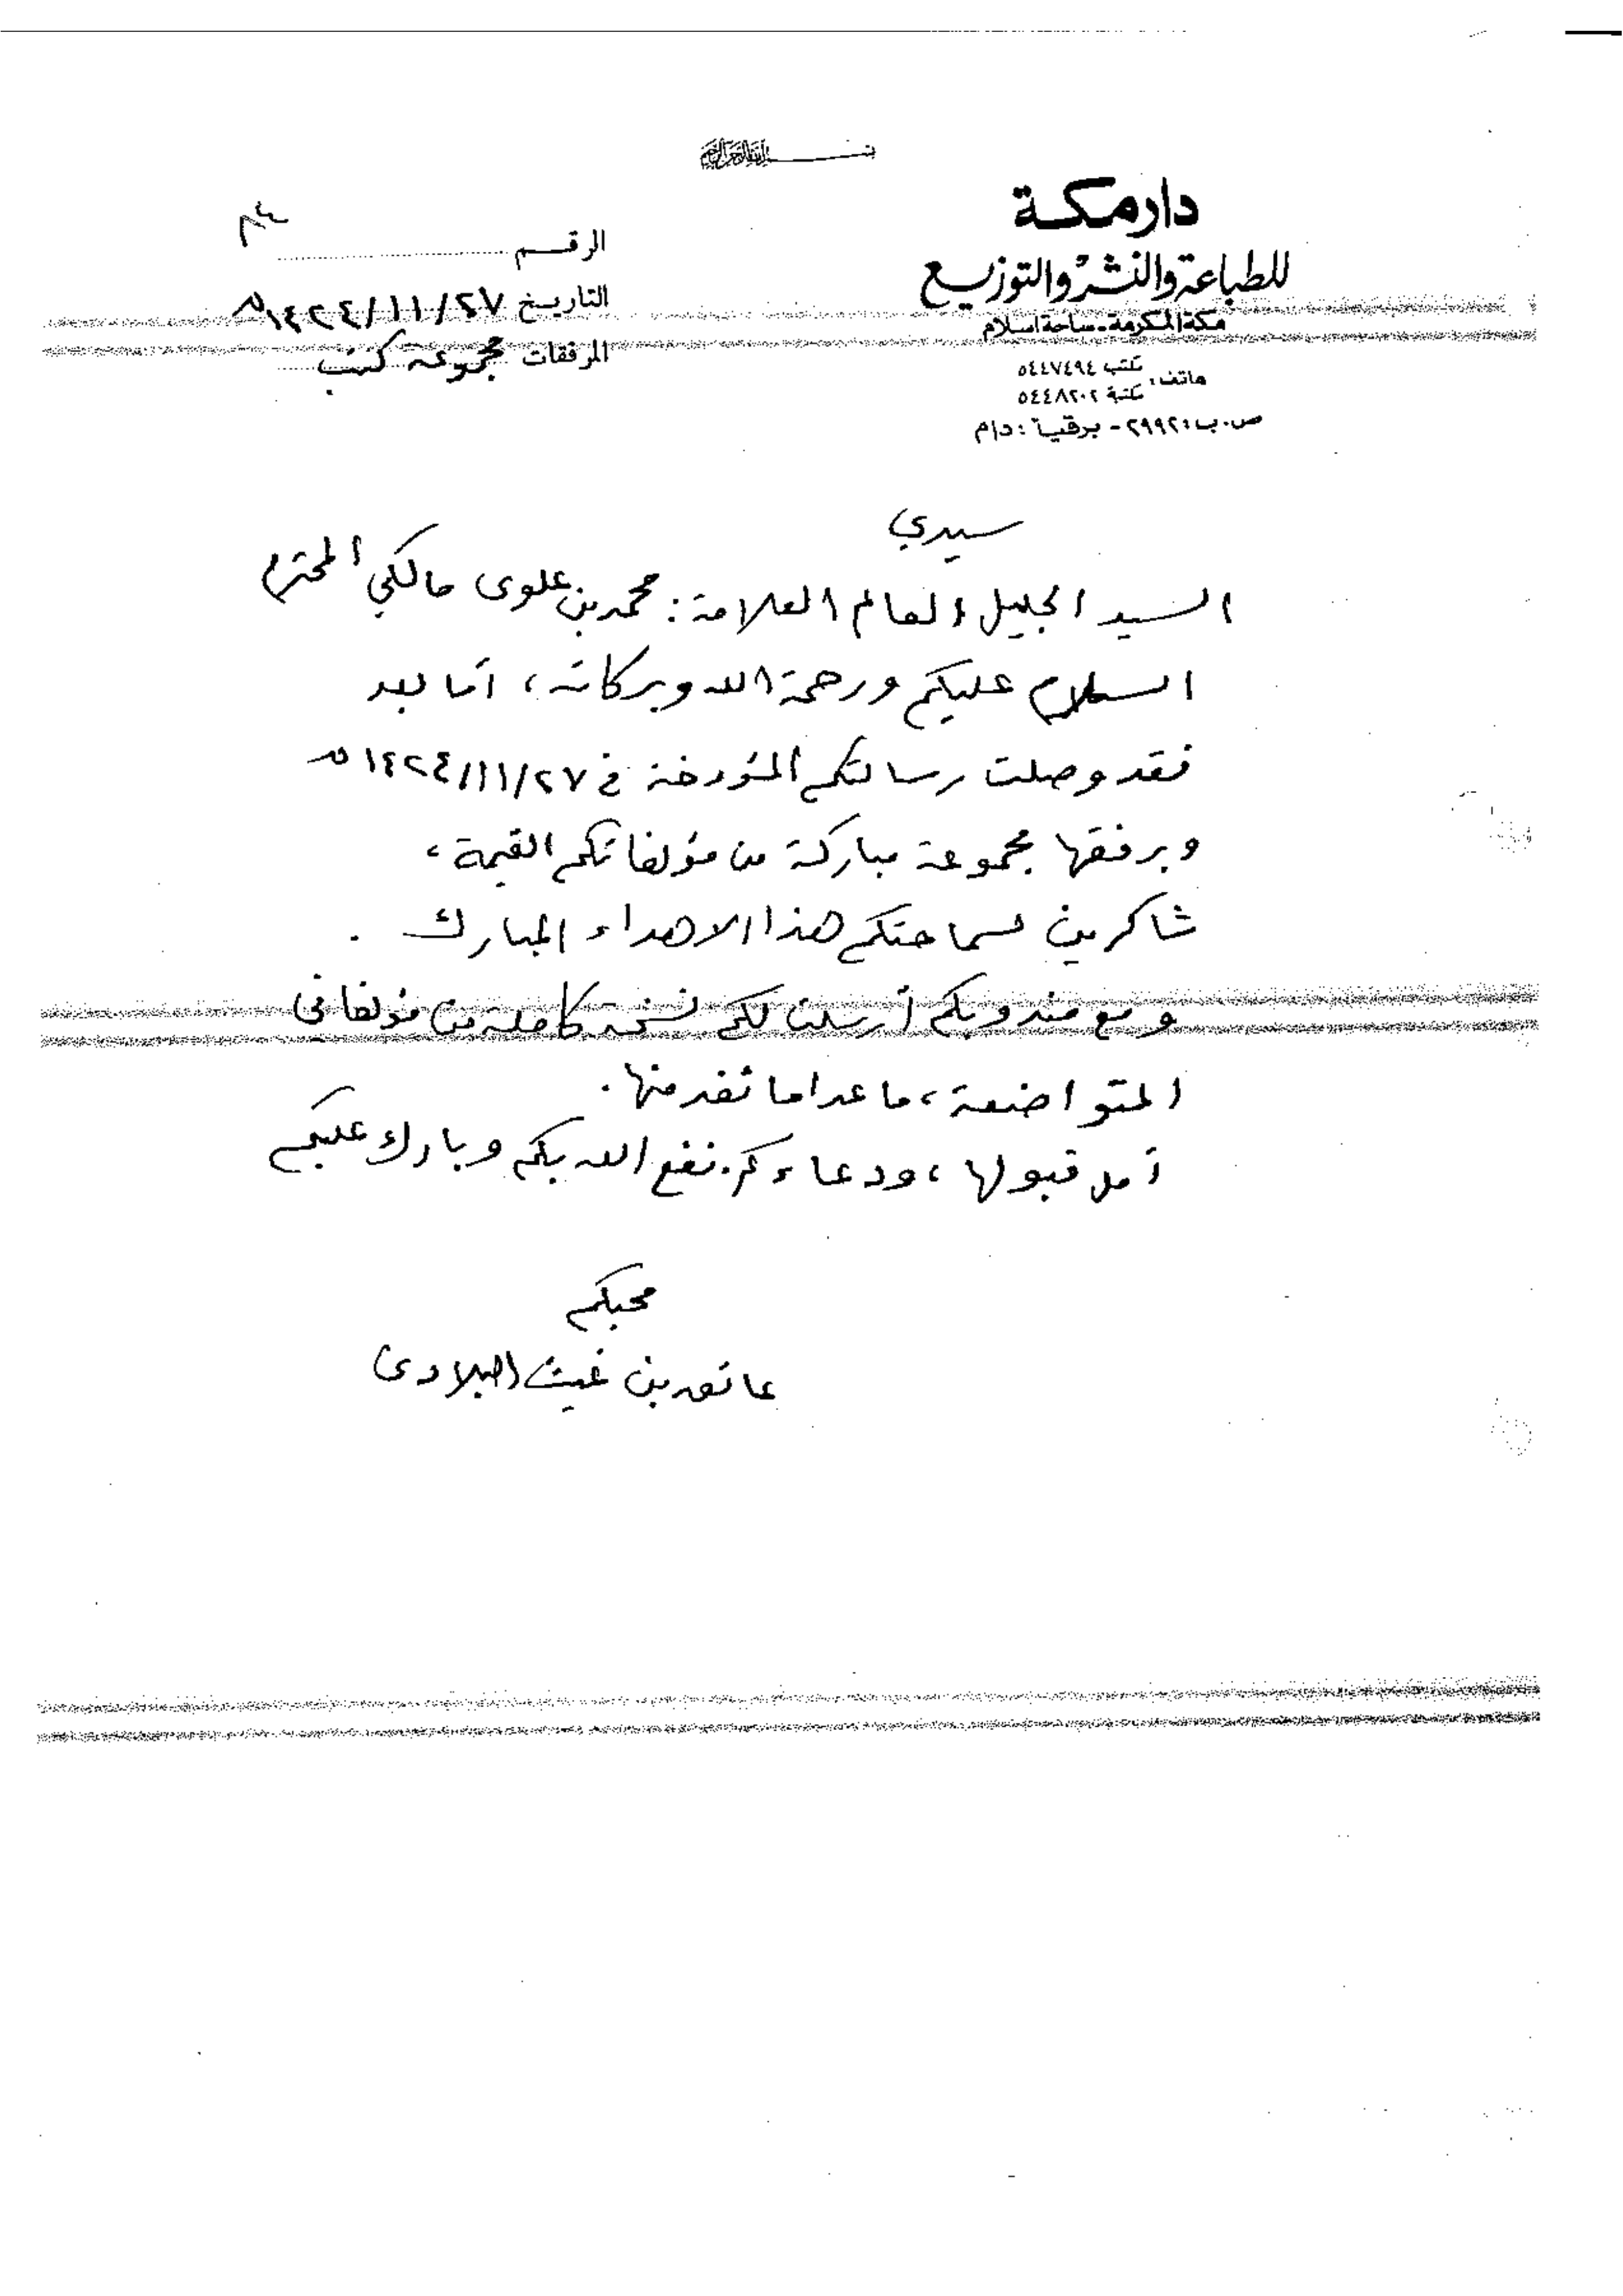 بسم الله الرحمن الرحيم
دار مكة
للطباعة والنشر والتوزيع
مكة المكرمة - ساحة اسلام
هاتف: مكتب ٥٤٤٧٤٩٤
مكتبة ٥٤٤٨٢٠٢
ص.ب: ٢٩٩٢ - برقيا: دام
الرقم
التاريخ ٢٧/١١/١٤٢٤هـ
المرفقات مجموعة كتب
سيدي
السيد الجليل العالم العلامة: محمد بن علوى مالكي المحترم
السلام عليكم ورحمة الله وبركاته، أما بعد
فقد وصلت رسالتكم المؤرخة في ٢٧/١١/١٤٢٤هـ
وبرفقها مجموعة مباركة من مؤلفاتكم القيمة،
شاكرين لسماحتكم هذا الاهداء المبارك.
ومع مندوبكم أرسلت لكم نسخة كاملة من مؤلفاتي
المتواضعة، ما عدا ما نفد منها.
آمل قبولها، ودعاءكم. نفع الله بكم وبارك عليكم
محبكم
عاتق بن غيث البلادى